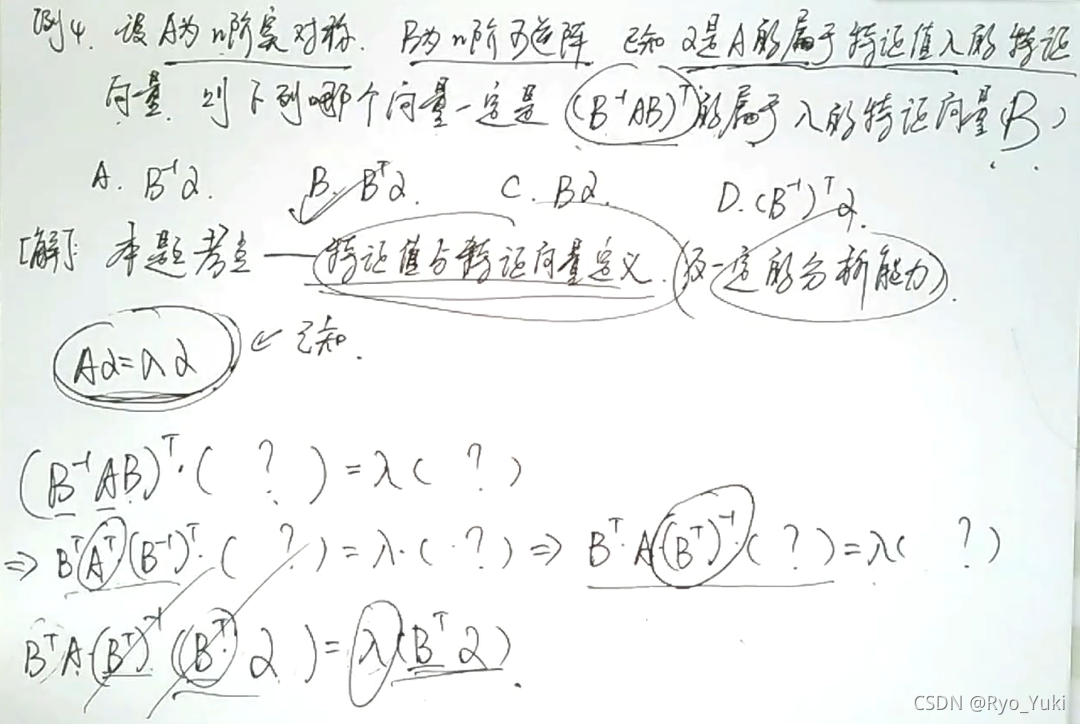 例4. 设A为n阶实对称. B为n阶可逆阵 已知α是A的属于特征值λ的特征
向量. 则下列哪个向量一定是 (B⁻¹AB)ᵀ的属于λ的特征向量(B)
A. B⁻¹α. B. Bᵀα. C. Bα. D. (B⁻¹)ᵀα.
[解]: 本题考点——特征值与特征向量定义. (及一定的分析能力).
Aα=λα ← 已知.
(B⁻¹AB)ᵀ·( ? ) = λ( ? )
⇒ BᵀAᵀ(B⁻¹)ᵀ·( ? ) = λ·( ? ) ⇒ BᵀA(Bᵀ)⁻¹( ? ) = λ( ? )
BᵀA·(Bᵀ)⁻¹(Bᵀα) = λ(Bᵀα).
CSDN @Ryo_Yuki